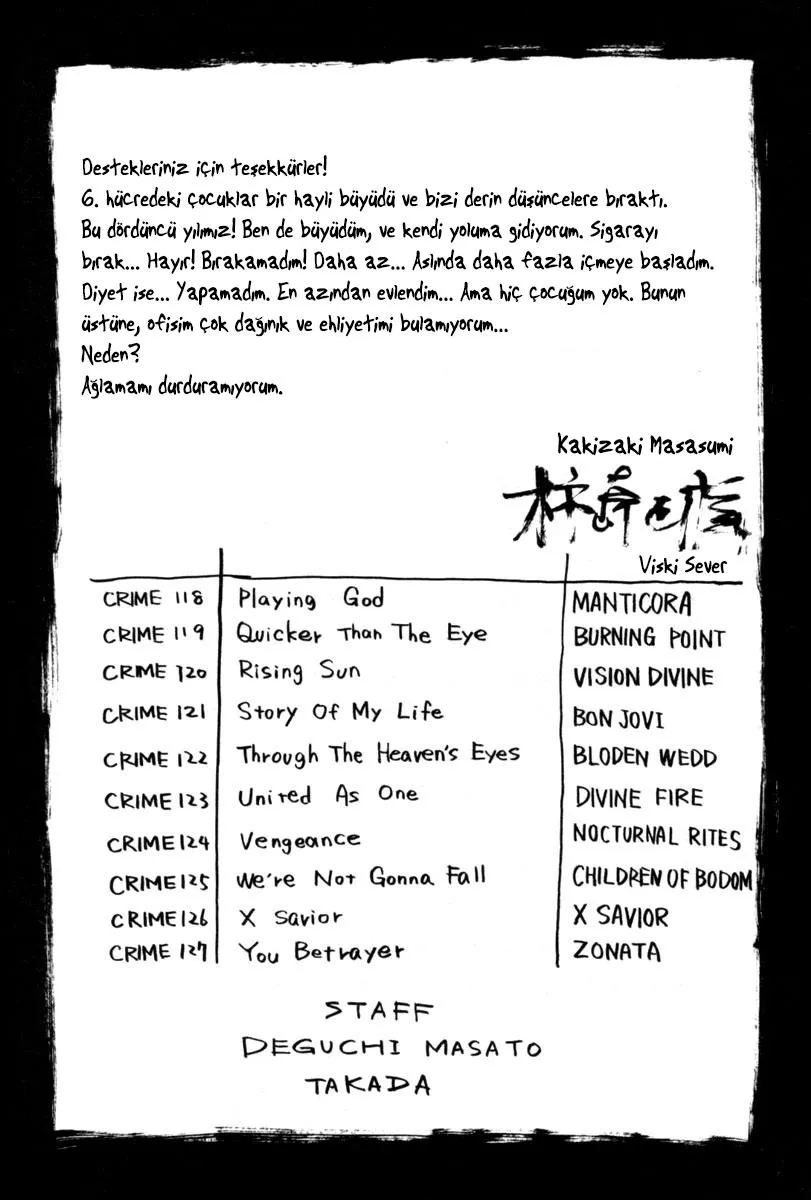 Destekleriniz için teşekkürler!
6. hücredeki çocuklar bir hayli büyüdü ve bizi derin düşüncelere bıraktı.
Bu dördüncü yılımız! Ben de büyüdüm, ve kendi yoluma gidiyorum. Sigarayı
bırak... Hayır! Bırakamadım! Daha az... Aslında daha fazla içmeye başladım.
Diyet ise... Yapamadım. En azından evlendim... Ama hiç çocuğum yok. Bunun
üstüne, ofisim çok dağınık ve ehliyetimi bulamıyorum...
Neden?
Ağlamamı durduramıyorum.
Kakizaki Masasumi
Viski Sever
CRIME 118 Playing God MANTICORA
CRIME 119 Quicker Than The Eye BURNING POINT
CRIME 120 Rising Sun VISION DIVINE
CRIME 121 Story Of My Life BON JOVI
CRIME 122 Through The Heaven's Eyes BLODEN WEDD
CRIME 123 United As One DIVINE FIRE
CRIME 124 Vengeance NOCTURNAL RITES
CRIME 125 We're Not Gonna Fall CHILDREN OF BODOM
CRIME 126 X Savior X SAVIOR
CRIME 127 You Betrayer ZONATA
STAFF
DEGUCHI MASATO
TAKADA